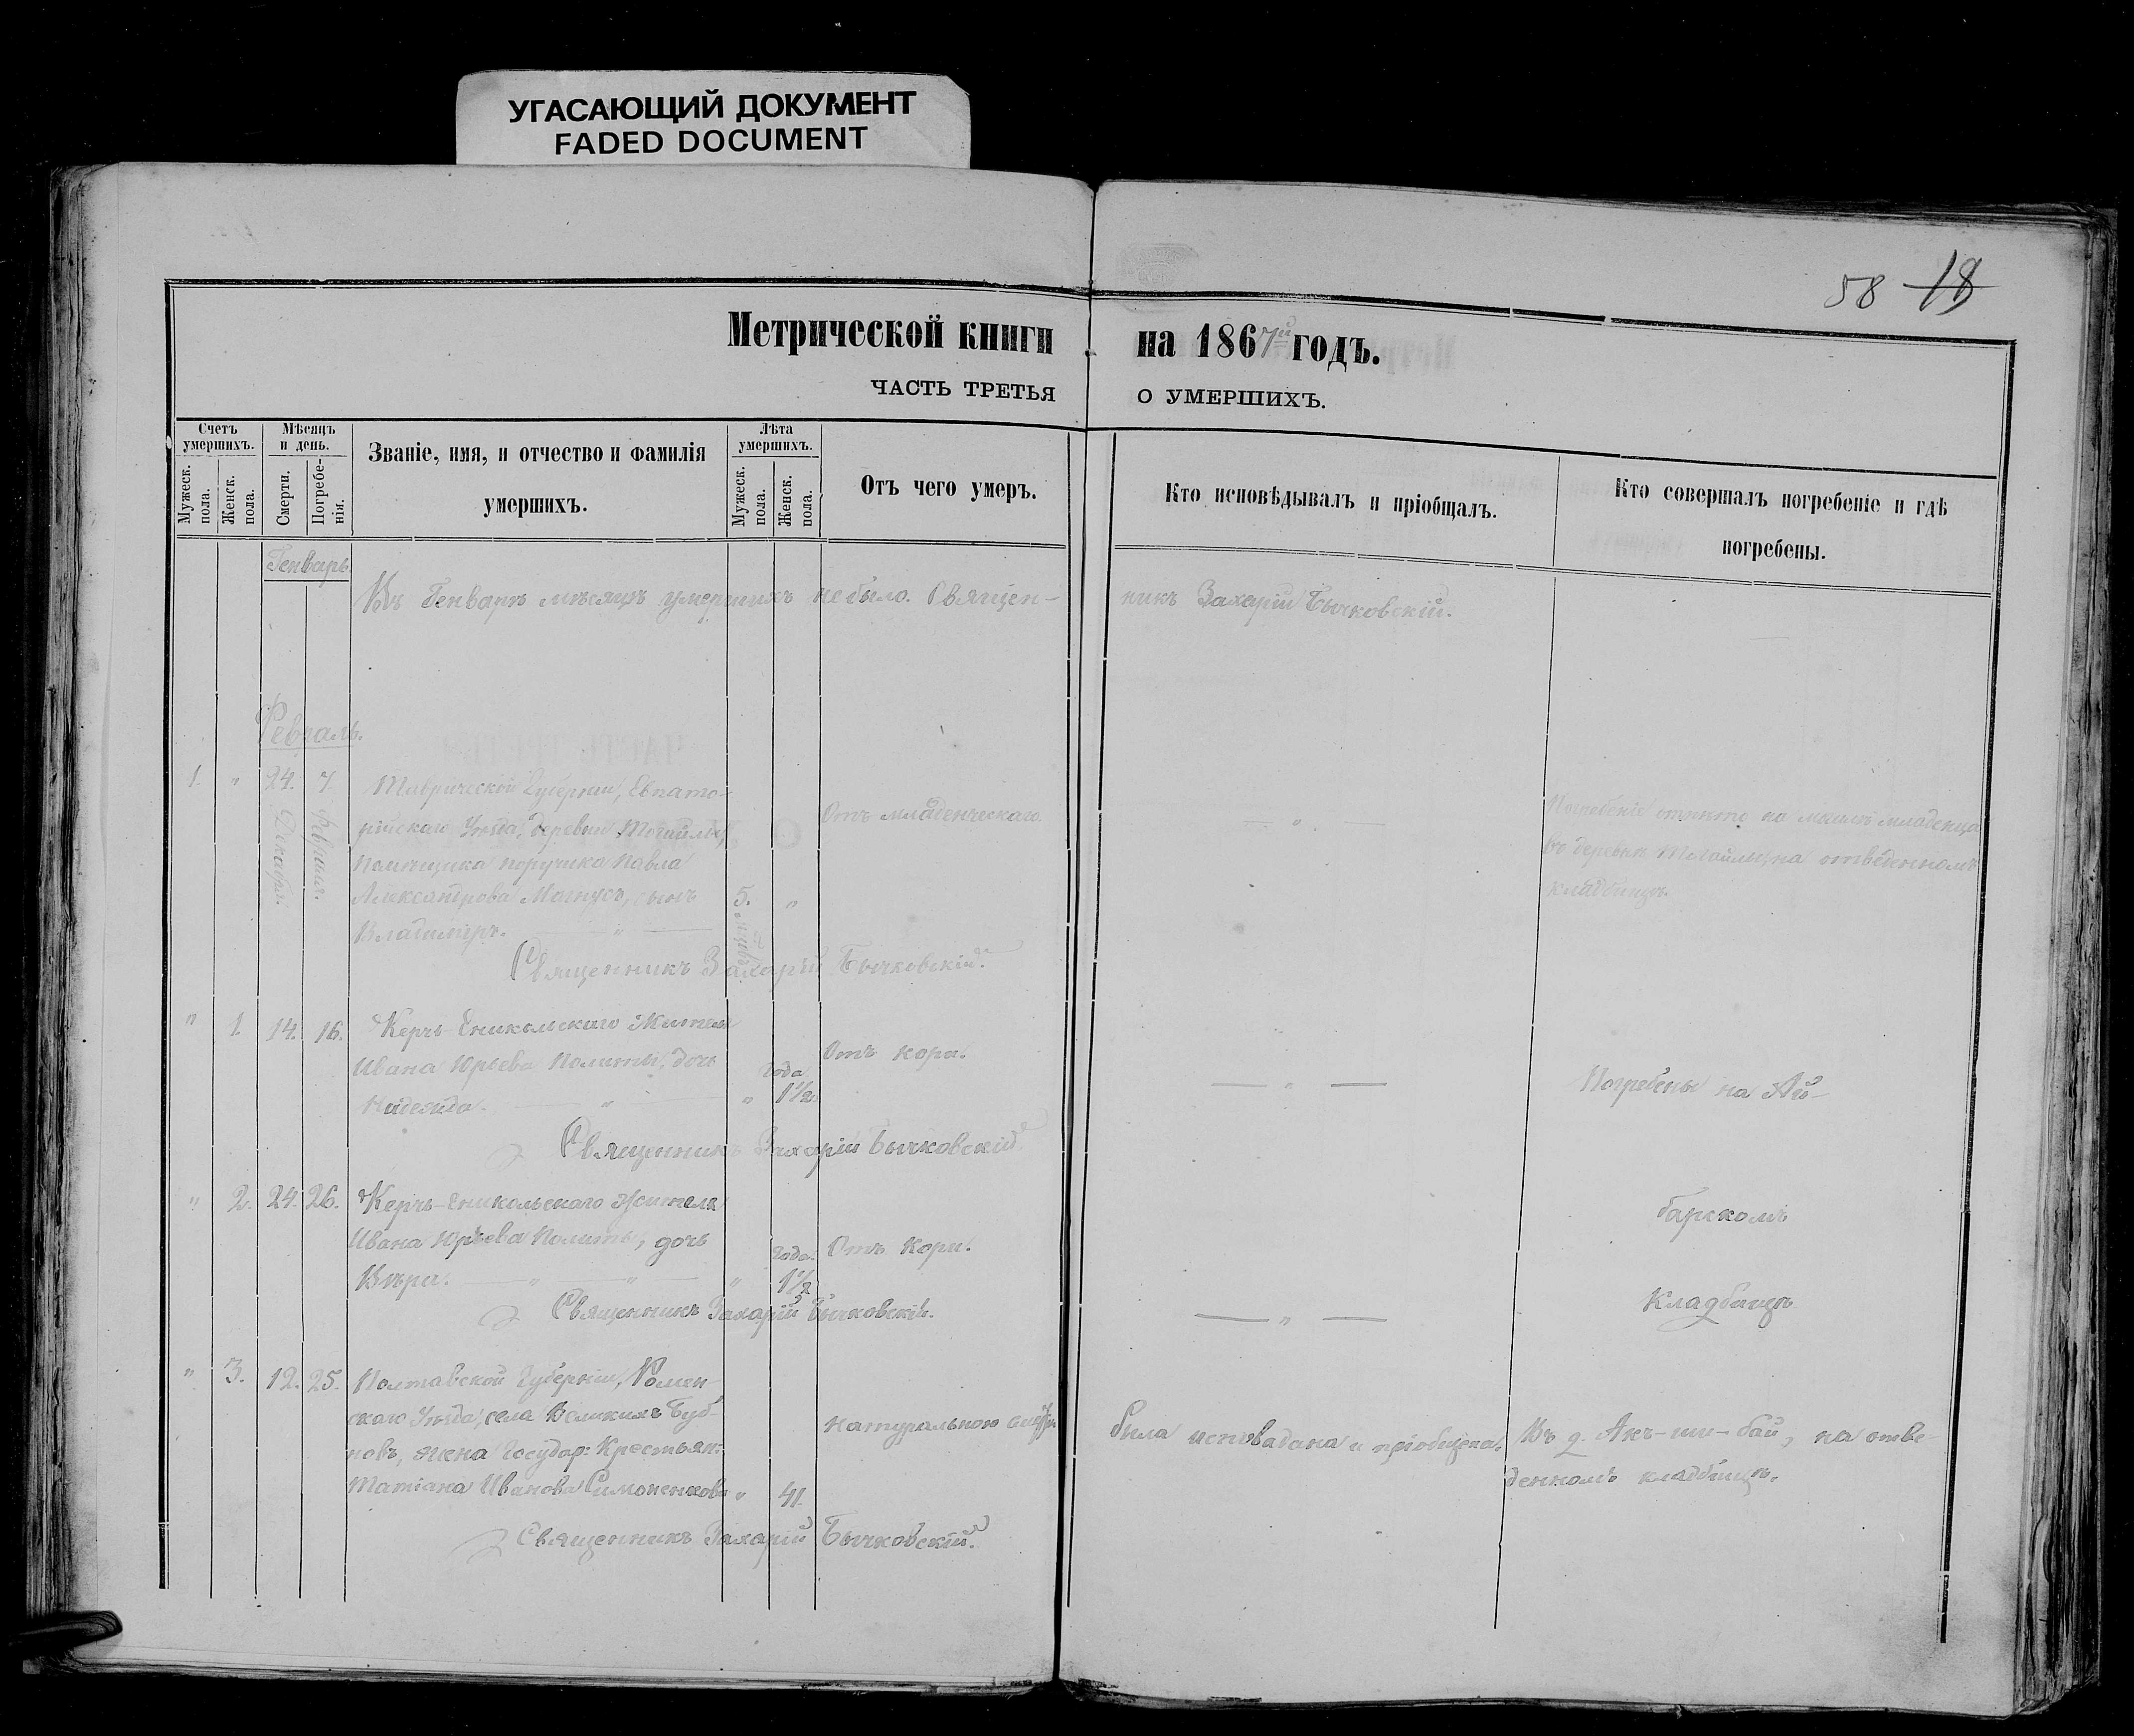 УГАСАЮЩИЙ ДОКУМЕНТ
FADED DOCUMENT
58 18
Метрической книги на 1867й годъ.
ЧАСТЬ ТРЕТЬЯ О УМЕРШИХЪ.
Счетъ умершихъ.
Мужеск. пола.
Женск. пола.
Мѣсяцъ и день.
Смерти.
Погребенія.
Званіе, имя, и отчество и фамилія
умершихъ.
Лѣта умершихъ.
Мужеск. пола.
Женск. пола.
Отъ чего умеръ.
Кто исповѣдывалъ и пріобщалъ.
Кто совершалъ погребеніе и гдѣ
погребены.
Генварь
Въ Генварѣ мѣсяцѣ умершихъ не было. Священ-
никъ Захарій Бычковскій.
Февраль.
1. " 24. 7. Таврической Губерніи, Евпато-
Декабря. Февраля.
рійскаго Уѣзда, деревни
Помѣщика поручика Павла
Александрова Могнусъ, сынъ 5. "
Владиміръ. — " —
Отъ младенческаго
— " —
Погребеніе младенца
въ деревнѣ на отведенномъ
кладбищѣ.
Священникъ Захарій Бычковскій.
" 1. 14. 16. Керчь-Еникольскаго Жителя
Ивана Юрьева Политы, дочь года
Надежда. — " — " 1½
Отъ кори.
— " —
Погребены на Ай-
Священникъ Захарій Бычковскій
" 2. 24. 26. Керчь-Еникольскаго Жителя
Ивана Юрьева Политы, дочь года.
Вѣра. — " — " — " 1½
Отъ Кори.
барскомъ
Кладбищѣ
— " —
Священникъ Захарій Бычковскій.
" 3. 12. 25. Полтавской Губерніи, Ромен-
скаго Уѣзда, села Великихъ Буб-
новъ, жена Государ: Крестьян:
Татіана Иванова Симоненкова " 41.
натуральною
Была исповѣдана и пріобщена.
Въ д. Акъ-ши-бай, на отве-
денномъ кладбищѣ.
Священникъ Захарій Бычковскій.